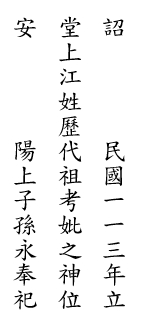 詔　民國一一三年立
堂上江姓歷代祖考妣之神位
安　陽上子孫永奉祀